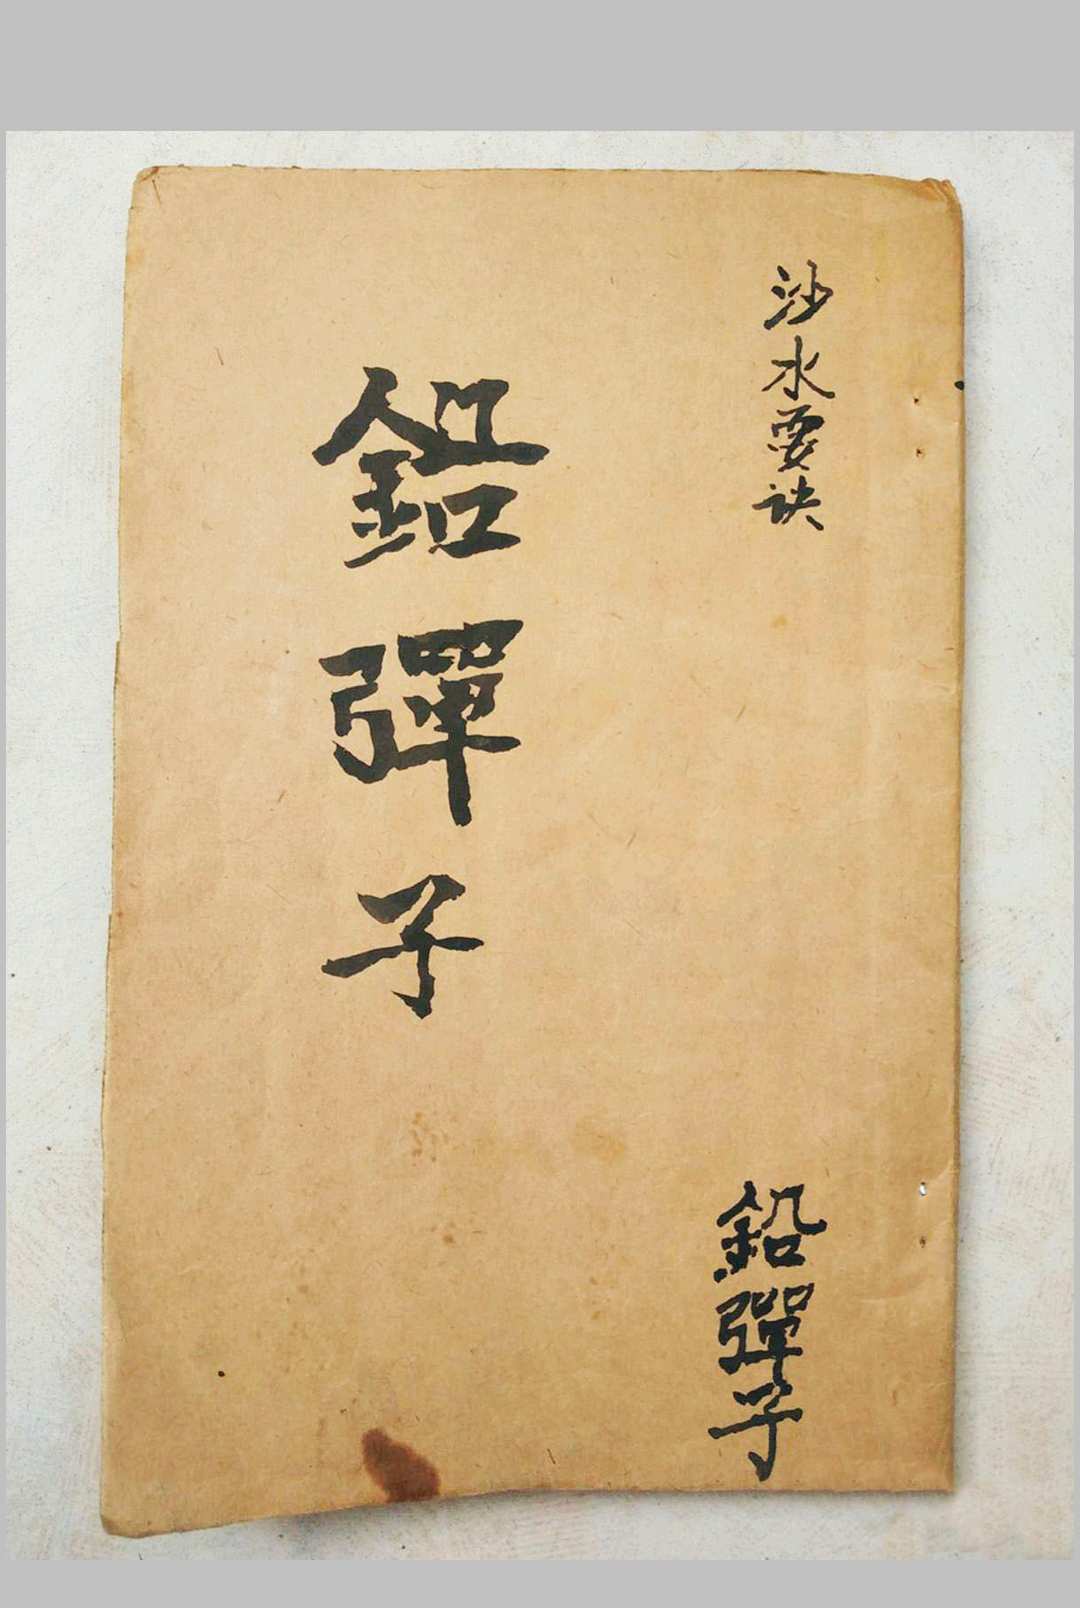 沙水要訣
鉛彈子
鉛彈子